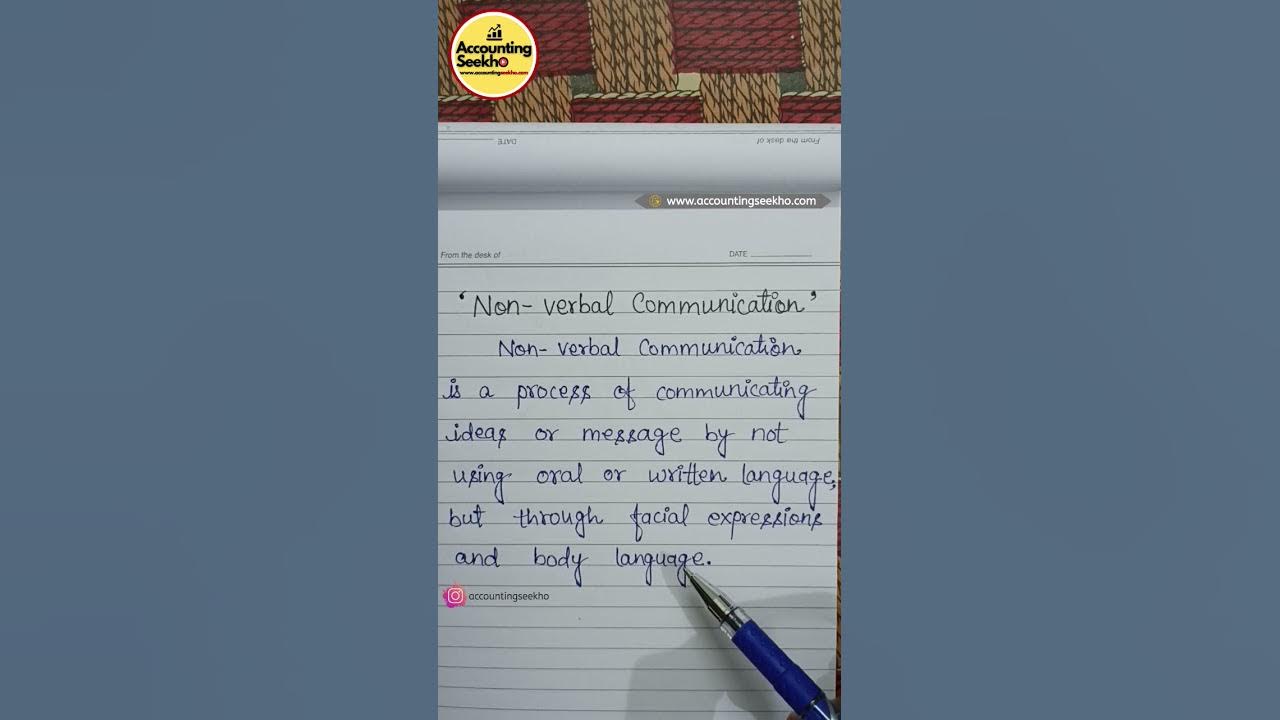 Accounting
Seekho
www.accountingseekho.com
From the desk of
DATE
www.accountingseekho.com
From the desk of
DATE
‘Non-verbal Communication’
Non-verbal Communication
is a process of communicating
ideas or message by not
using oral or written language,
but through facial expressions
and body language.
accountingseekho